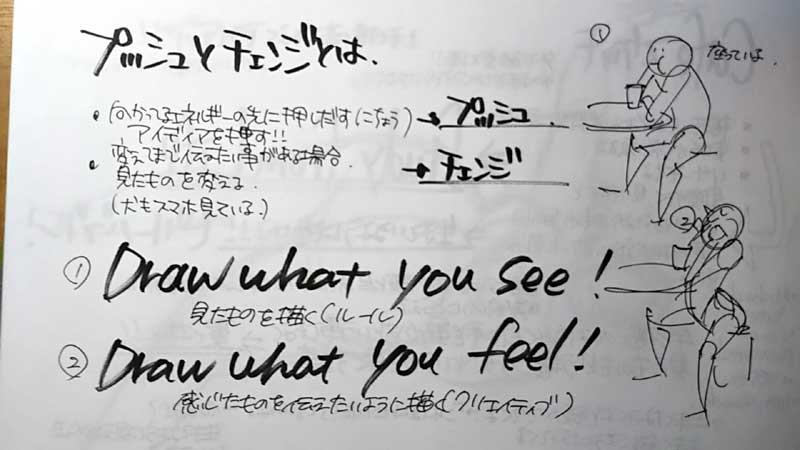 プッシュとチェンジとは.
• 向かってるエネルギーの先に押しだす(こちょう) → プッシュ.
アイディアを押す!!
• 変えてまで伝えたい事がある場合. → チェンジ
見たものを変える.
(犬もスマホ見ている.)
① Draw what you see!
見たものを描く(ルール)
② Draw what you feel!
感じたものを伝えたいように描く(クリエイティブ)
① 座っている.
②